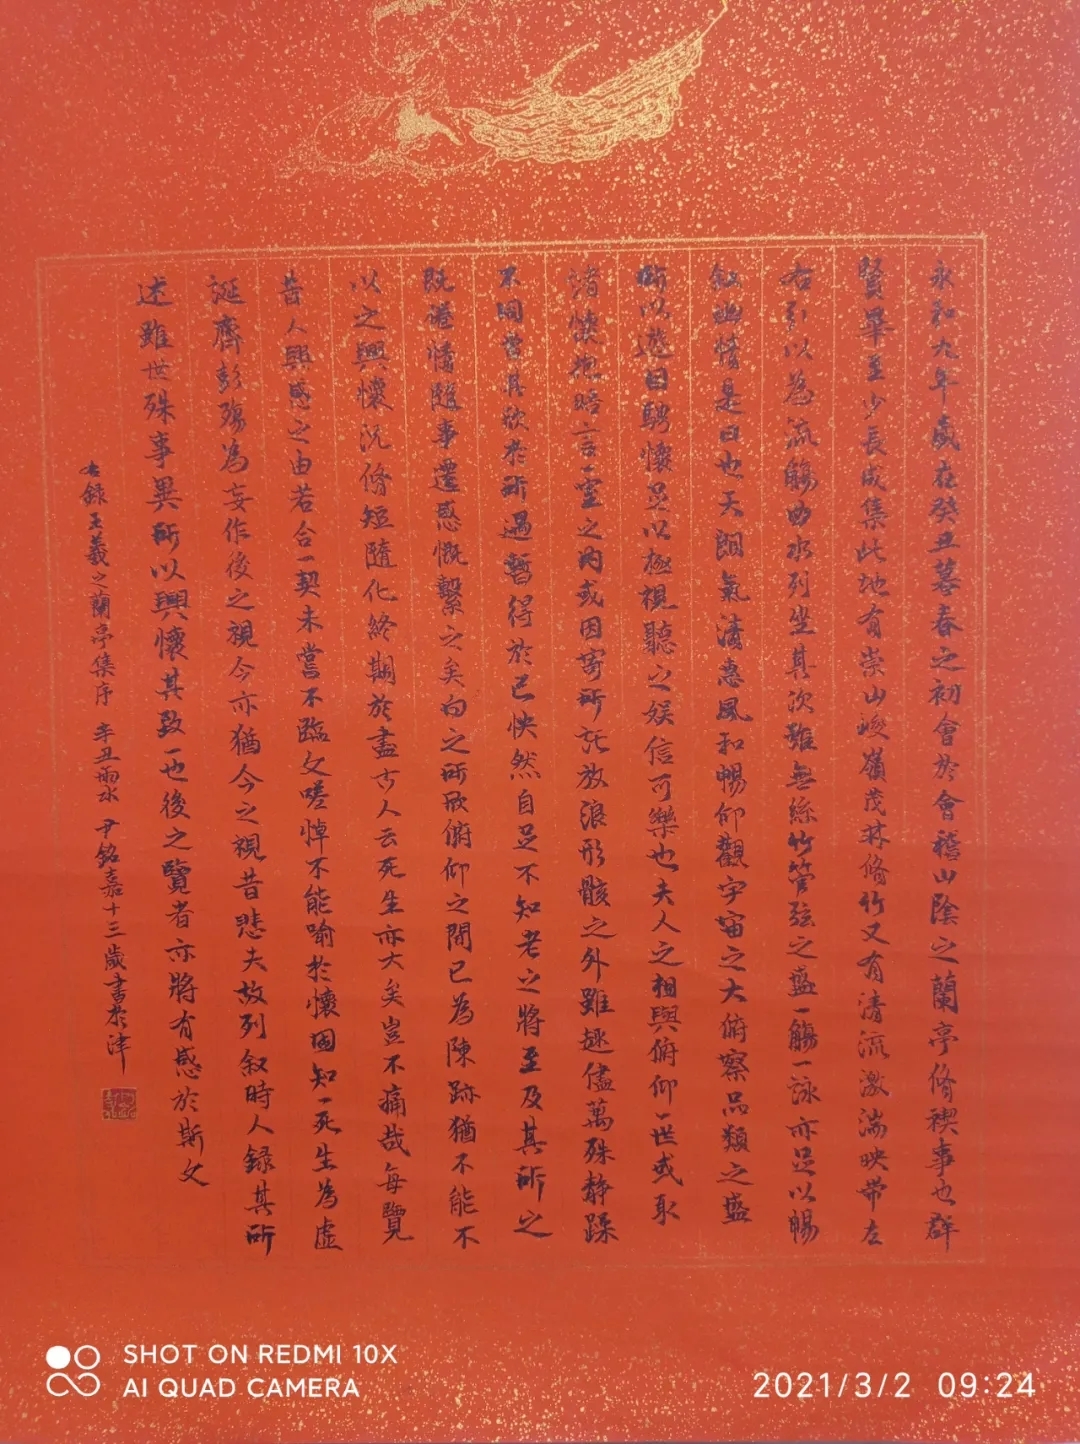 永和九年歲在癸丑暮春之初會於會稽山陰之蘭亭脩禊事也群
賢畢至少長咸集此地有崇山峻嶺茂林脩竹又有清流激湍映帶左
右引以為流觴曲水列坐其次雖無絲竹管弦之盛一觴一詠亦足以暢
叙幽情是日也天朗氣清惠風和暢仰觀宇宙之大俯察品類之盛
所以遊目騁懷足以極視聽之娛信可樂也夫人之相與俯仰一世或取
諸懷抱晤言一室之內或因寄所託放浪形骸之外雖趣舍萬殊静躁
不同當其欣於所遇暫得於己怏然自足不知老之將至及其所之
既惓情隨事遷感慨繫之矣向之所欣俯仰之間已為陳跡猶不能不
以之興懷況脩短隨化終期於盡古人云死生亦大矣豈不痛哉每覽
昔人興感之由若合一契未嘗不臨文嗟悼不能喻於懷固知一死生為虛
誕齊彭殤為妄作後之視今亦猶今之視昔悲夫故列叙時人録其所
述雖世殊事異所以興懷其致一也後之覽者亦將有感於斯文
右録王羲之蘭亭集序 辛丑雨水 尹銘嘉十三歲書於津
SHOT ON REDMI 10X
AI QUAD CAMERA
2021/3/2 09:24